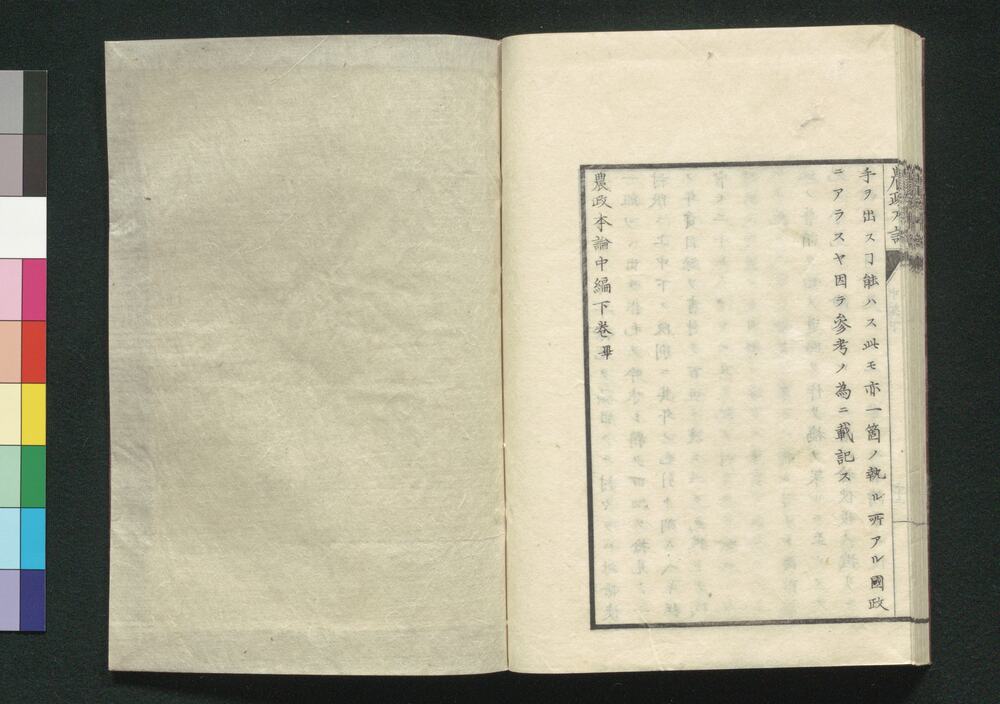 手ヲ出スヿ能ハス此モ亦一箇ノ執ル所アル國政
ニアラスヤ因テ參考ノ為ニ載記ス
農政本論中編下卷畢
農政本論